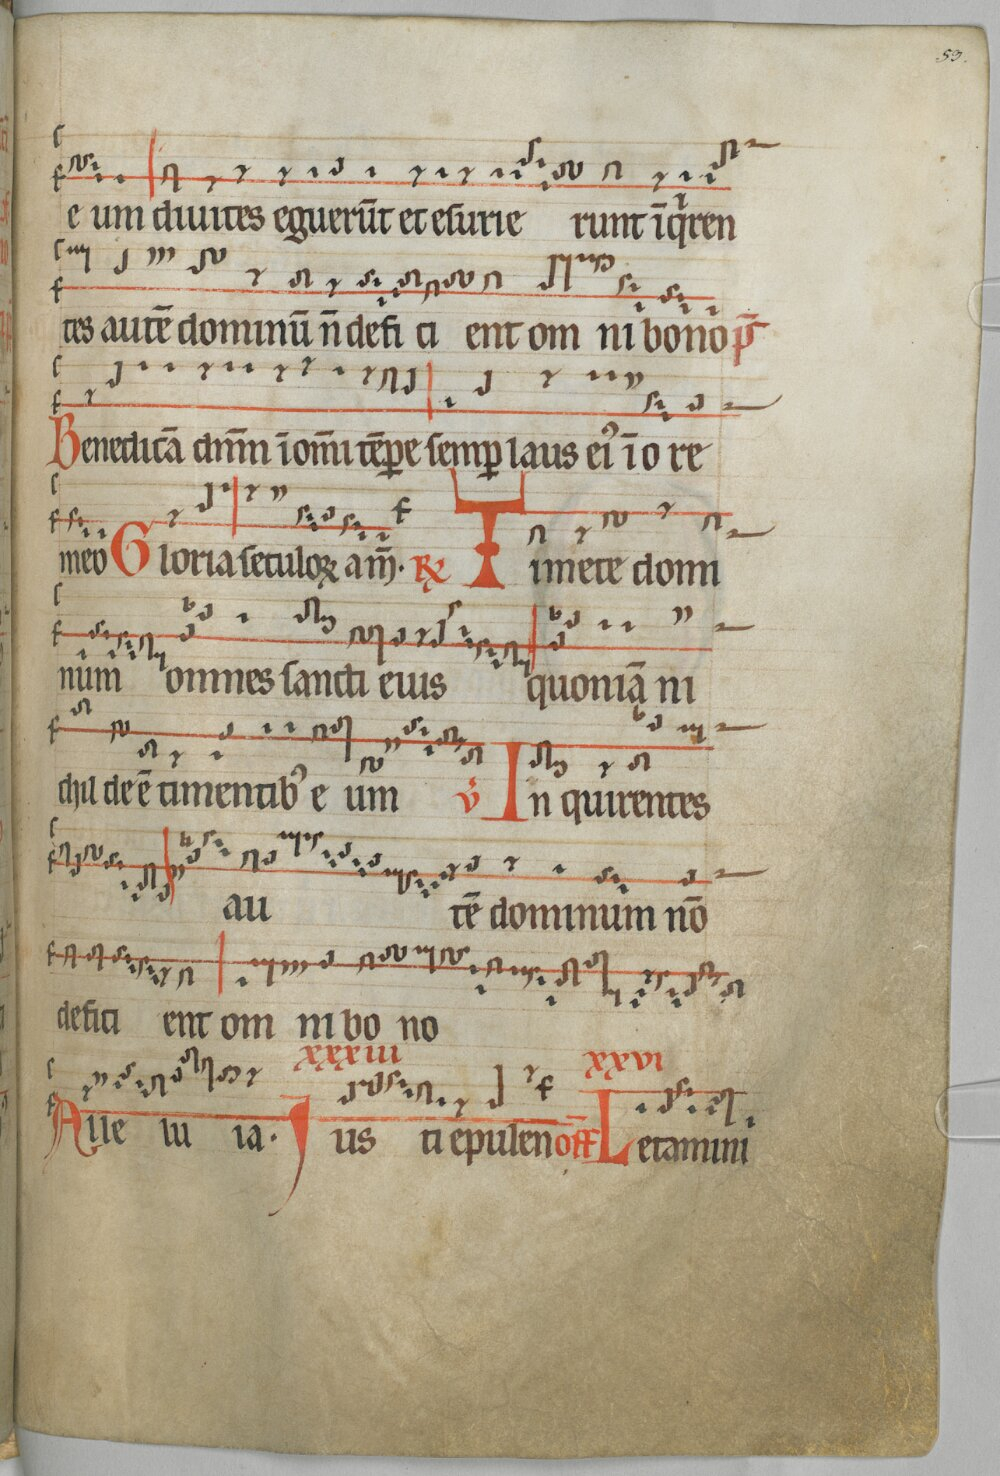 53.
e um diuites eguerūt et esurie runt īq̄ren
tes autē dominū n̄ defi ci ent om ni bono p̄
Benedicā dn̄m ī om̄i tēpe semp laus ei᾽ ī o re
meo Gloria seculoꝝ am̄. R̄ Timete domi
num omnes sancti eius quoniā ni
chil de ē timentib᾽ e um v̄ In quirentes
au tē dominum nō
defici ent om ni bo no
xxxiii xxvi
Alle lu ia. Jus ti epulen off Letamini